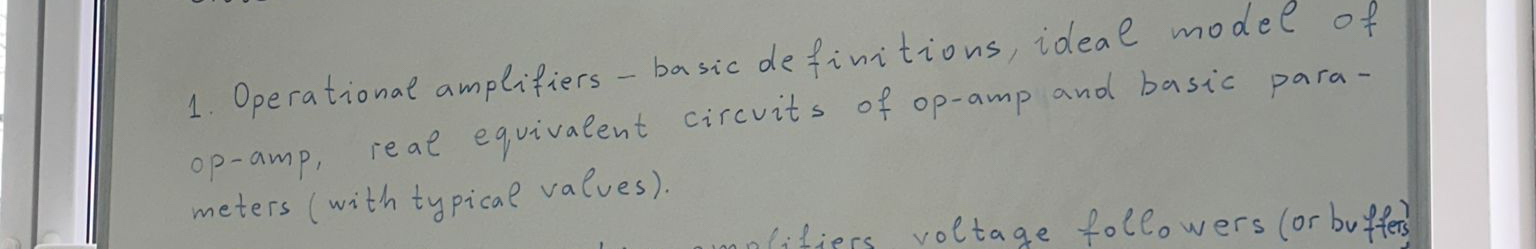 1. Operational amplifiers - basic definitions, ideal model of
op-amp, real equivalent circuits of op-amp and basic para-
meters (with typical values).
amplifiers voltage followers (or buffers)